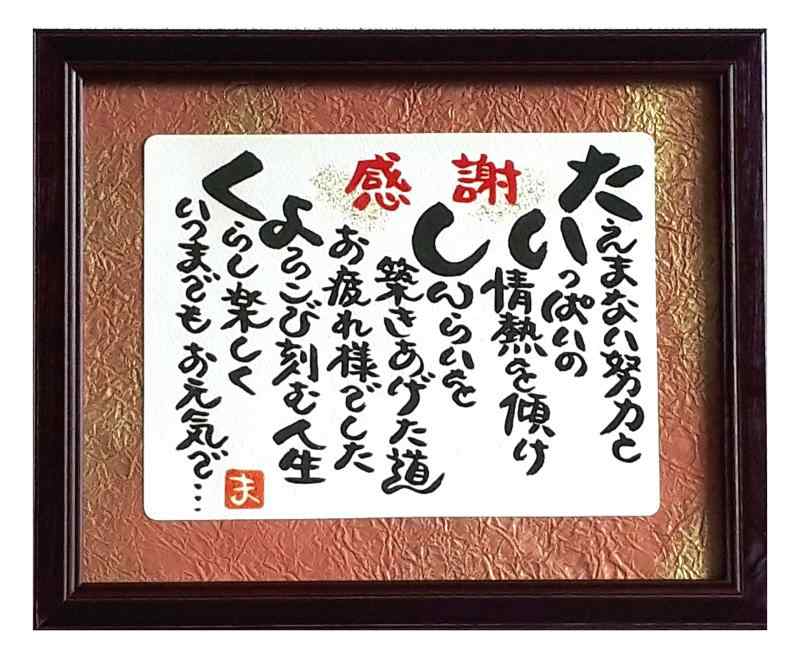 感謝
たえまない努力と
いっぱいの
情熱を傾け
しんらいを
築きあげた道
お疲れ様でした
よろこび刻む人生
くらし楽しく
いつまでもお元気で…
ま